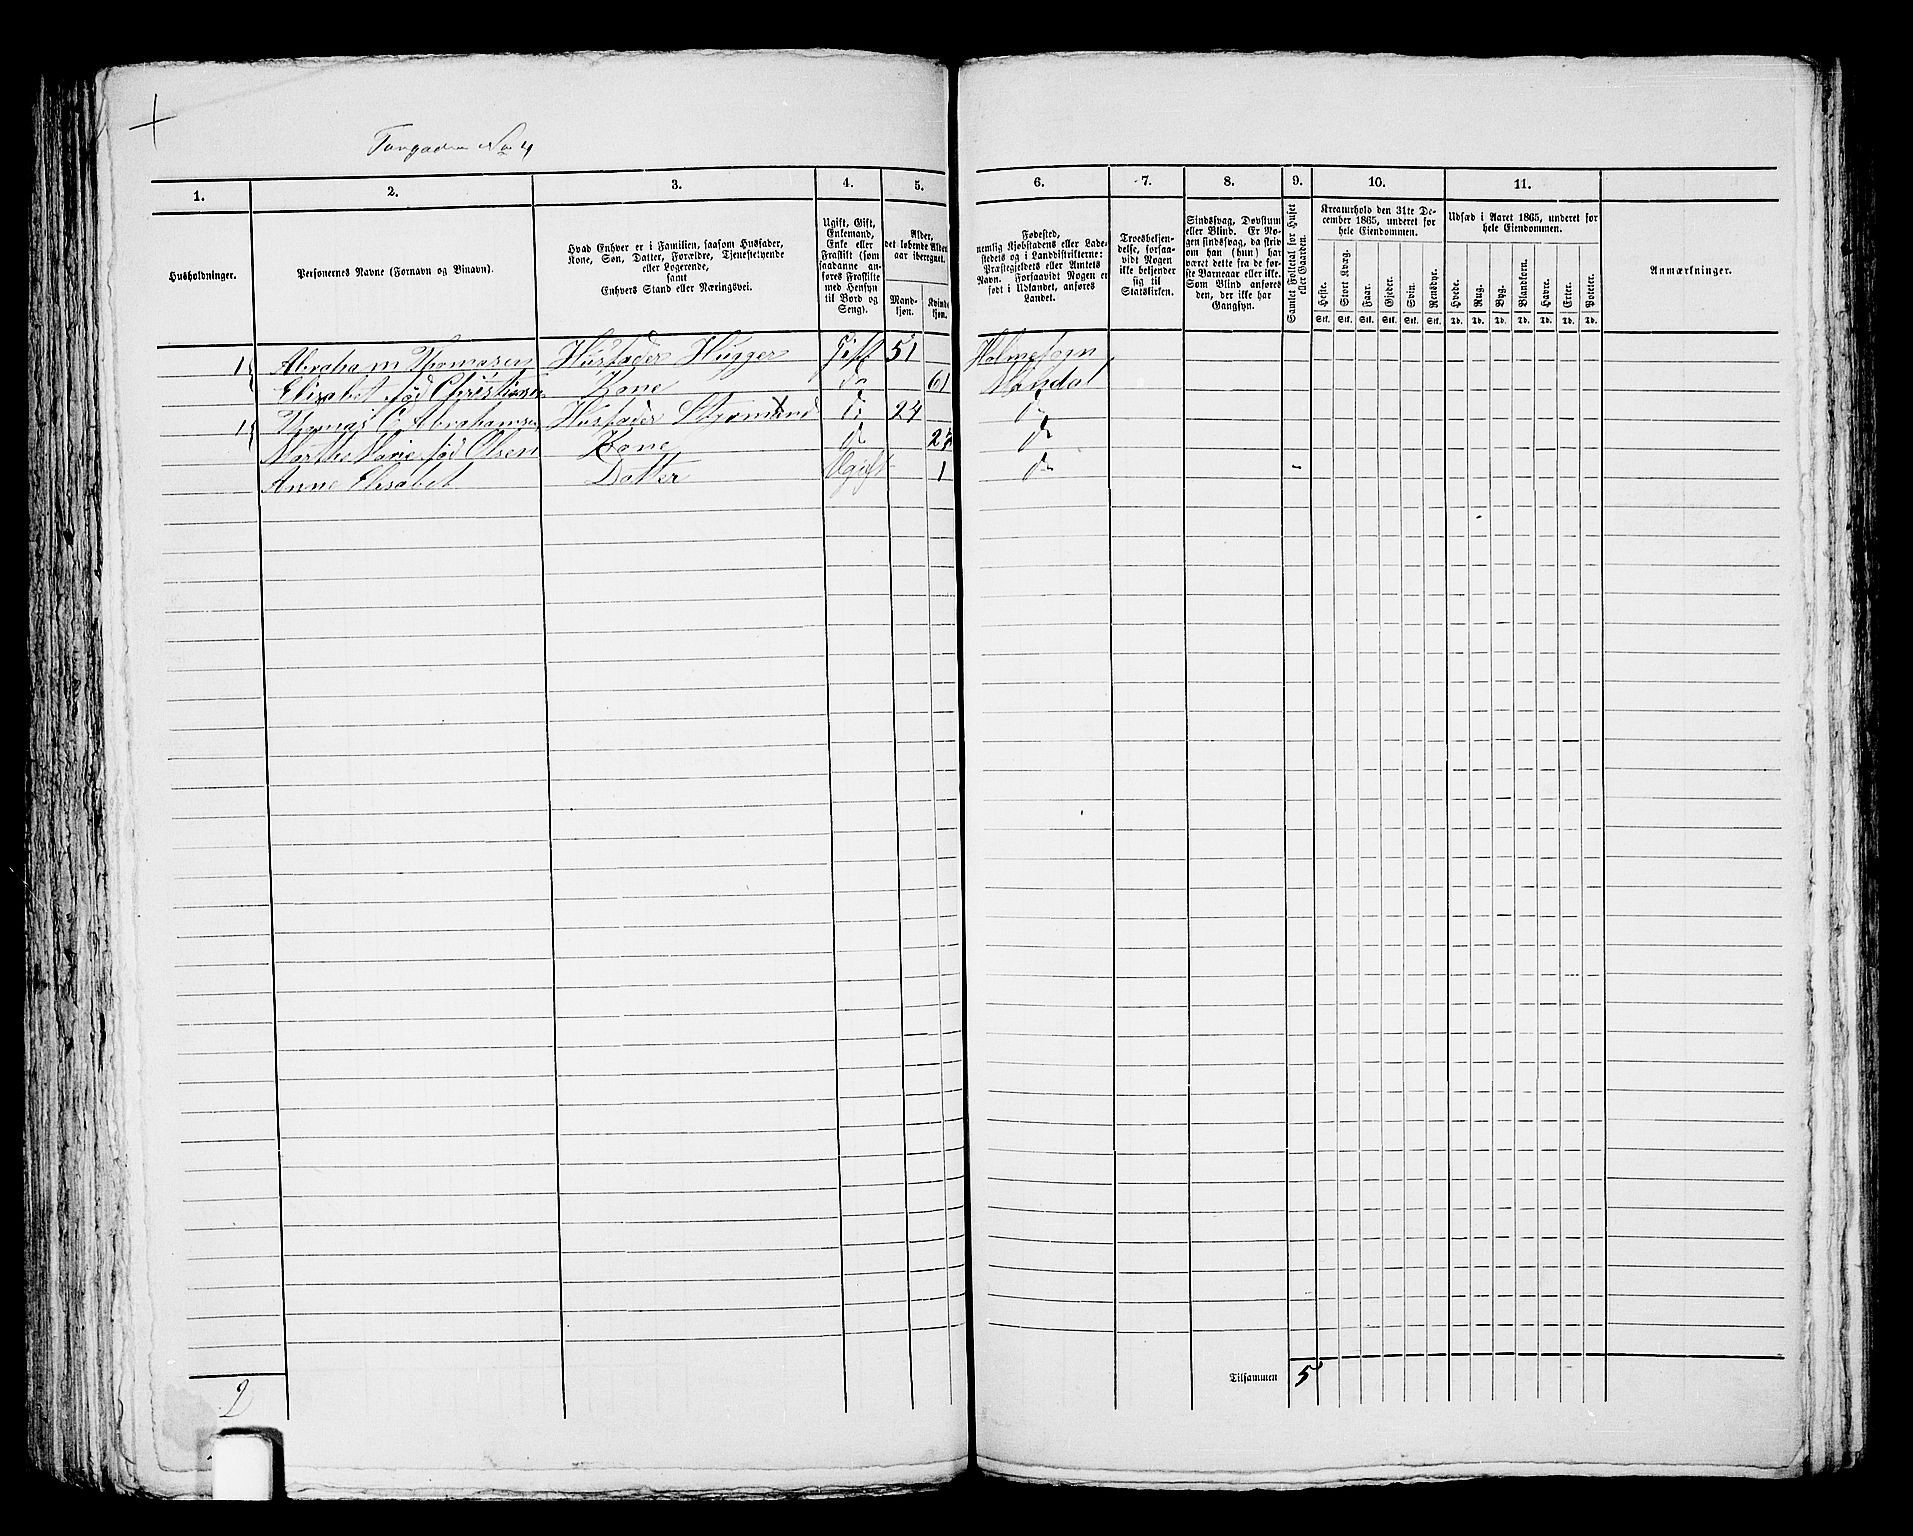 Tangaden No 4
1. 2. 3. 4. 5. 6. 7. 8. 9. 10. 11.
Husholdninger.
Personernes Navne (Fornavn og Binavn).
Hvad Enhver er i Familien, saasom Husfader,
Kone, Søn, Datter, Forældre, Tjenestetyende
eller Logerende,
samt
Enhvers Stand eller Næringsvei.
Ugift, Gift,
Enkemand,
Enke eller
Fraskilt (som
saadanne an-
føres Fraskilte
med Hensyn
til Bord og
Seng).
Alder,
det løbende Alders-
aar iberegnet.
Mand-
kjøn.
Kvinde-
kjøn.
Fødested,
nemlig Kjøbstadens eller Lade-
stedets og i Landdistrikterne:
Præstegjeldets eller Amtets
Navn. Forsaavidt Nogen er
født i Udlandet, anføres
Landet.
Troesbekjen-
delse, forsaa-
vidt Nogen
ikke bekjender
sig til
Statskirken.
Sindssvag, Døvstum
eller Blind. Er No-
gen sindssvag, da skriv
om han (hun) har
været dette fra de før-
ste Barneaar eller ikke.
Som Blind anføres
den, der ikke har
Gangsyn.
Samlet Folketal for Huset
eller Gaarden.
Kreaturhold den 31te De-
cember 1865, underet for
hele Eiendommen.
Heste. Stort Kvæg. Faar. Gjeder. Svin. Rensdyr.
Stk. Stk. Stk. Stk. Stk. Stk.
Udsæd i Aaret 1865, underet for
hele Eiendommen.
Hvede. Rug. Byg. Blandkorn. Havre. Erter. Poteter.
Td. Td. Td. Td. Td. Td. Td.
Anmærkninger.
1 Abraham Thomasen Husfader Hugger Gift 51 Holmesogn
Elisabet fød Christensen Kone do 61 Mandal
1 Thomas C Abrahamsen Husfader Styrmand do 24 do
Marthe Marie fød Olsen Kone do do
Anne Elisabet Datter Ugift 1 do
2
Tilsammen 5